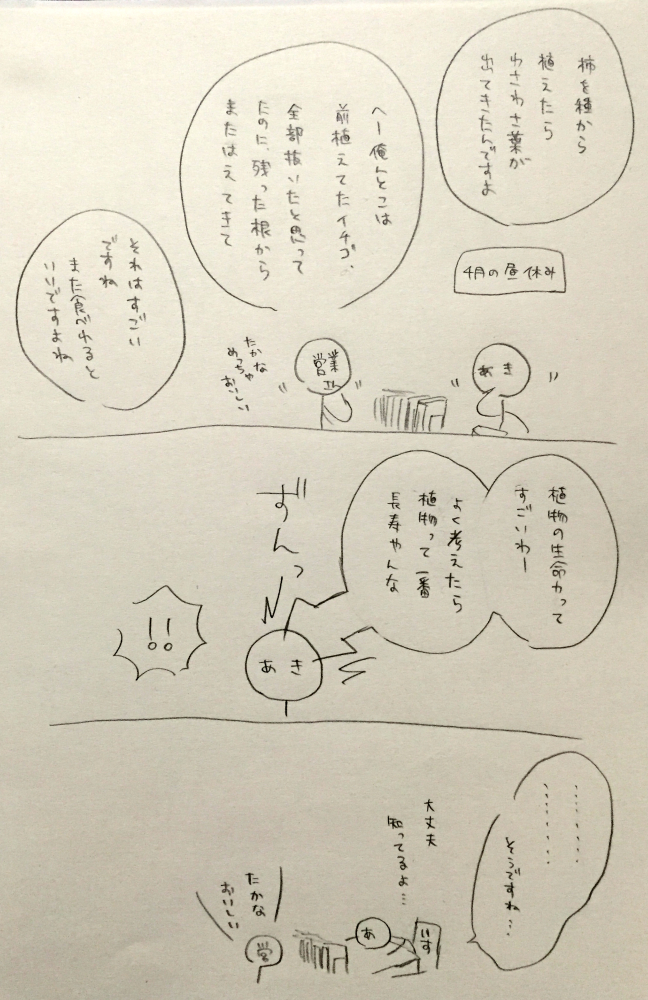 柿を種から
植えたら
わさわさ葉が
出てきたんですよ
4月の昼休み
へー俺んとこは
前植えてたイチゴ、
全部抜いたと思って
たのに、残った根から
またはえてきて
それはすごい
ですね
また食べれると
いいですよね
あき
営業
さん
たかな
めっちゃ
おいしい
植物の生命力って
すごいわー
よく考えたら
植物って一番
長寿やんな
ずんっ
あき
!!
…………
…………
そうですね…
大丈夫
知ってるよ…
いす
あ
たかな
おいしい
営